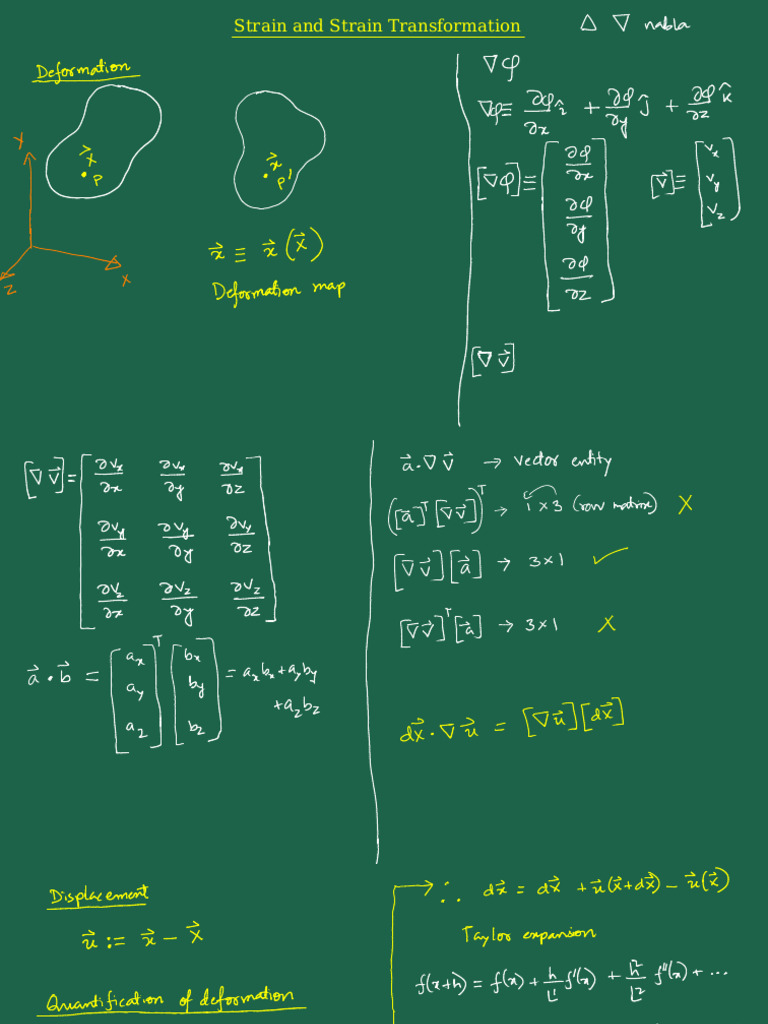 Strain and Strain Transformation
△ ∇ nabla
Deformation
X⃗
P
x⃗
P'
Y
X
Z
x⃗ ≡ x⃗(X⃗)
Deformation map
∇φ
∇φ ≡ ∂φ/∂x î + ∂φ/∂y ĵ + ∂φ/∂z k̂
[∇φ] ≡ [∂φ/∂x ∂φ/∂y ∂φ/∂z] [v⃗] ≡ [vx vy vz]
[∇v⃗]
[∇v⃗] = [∂vx/∂x ∂vx/∂y ∂vx/∂z
∂vy/∂x ∂vy/∂y ∂vy/∂z
∂vz/∂x ∂vz/∂y ∂vz/∂z]
a⃗ • b⃗ = [ax ay az]ᵀ [bx by bz] = axbx + ayby
+ azbz
a⃗ . ∇v⃗ → vector entity
([a⃗]ᵀ [∇v⃗])ᵀ → 1 × 3 (row matrix) X
[∇v⃗][a⃗] → 3×1 ✓
[∇v⃗]ᵀ[a⃗] → 3×1 X
dX⃗ . ∇u⃗ = [∇u⃗][dX⃗]
Displacement
u⃗ := x⃗ − X⃗
Quantification of deformation
∴ dx⃗ = dX⃗ + u⃗(X⃗+dX⃗) − u⃗(X⃗)
Taylor expansion
f(x+h) = f(x) + h/∟1 f'(x) + h²/∟2 f''(x) + ...